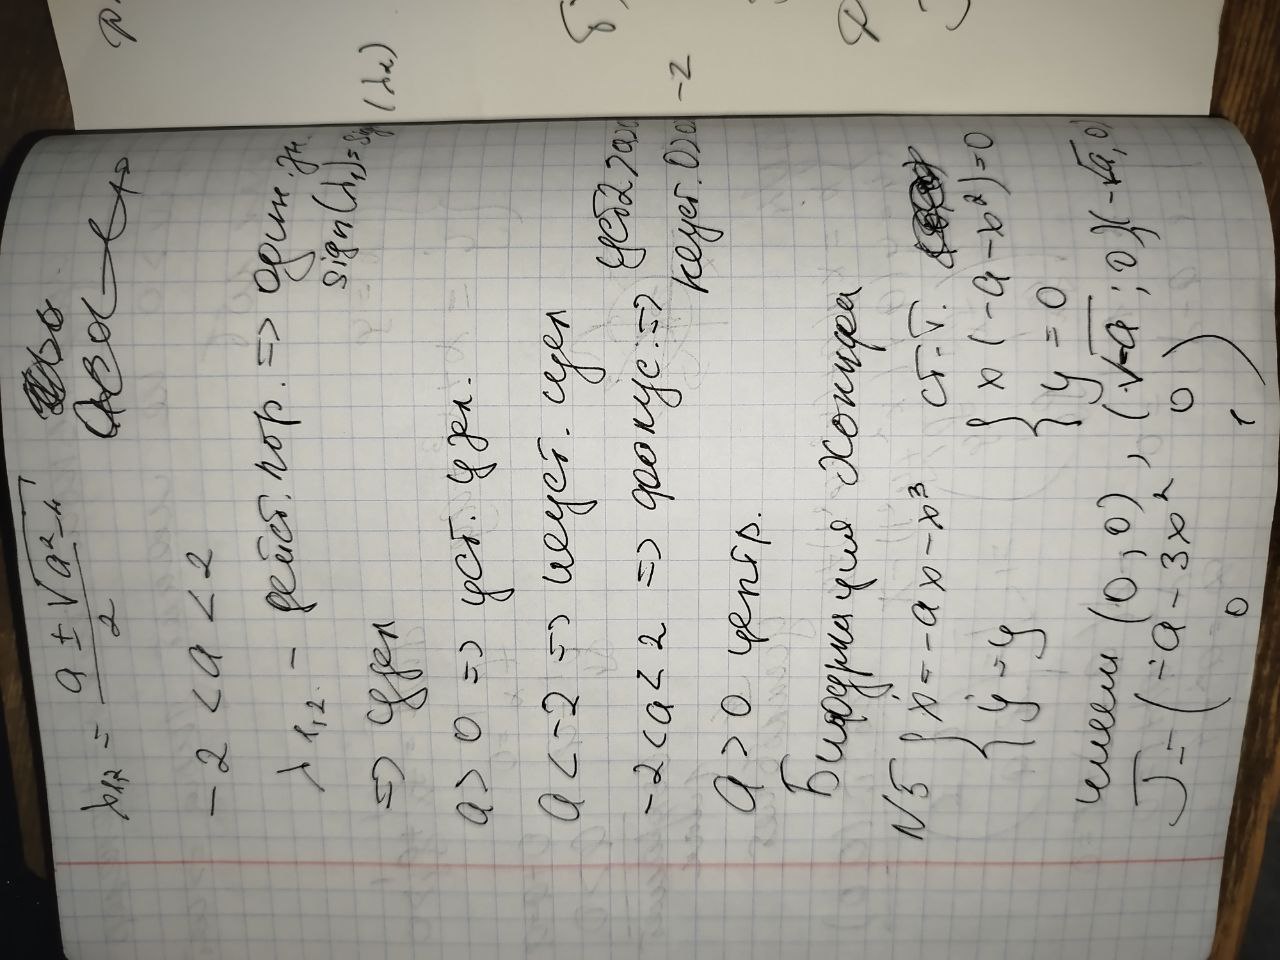 λ₁,₂ = (a ± √(a² - 4)) / 2
-2 < a < 2
λ₁,₂ - дейст. пор. => один. зн.
sign(λ₁) = sig (λ₂)
=> узел
a > 0 => уст. узел.
a < -2 => неуст. узел
-2 < a < 2 => фокус. =>
уст 2 > a >
неуст. 0 > a -2
a > 0 центр.
Бифуркация Хопифа
N5 { ẋ = -ax - x³ ст. т.
{ ẏ = y
{ x(-a - x²) = 0
{ y = 0
имеем (0, 0), (√-a; 0), (-√a, 0)
J = ( -a - 3x² 0 )
0 1